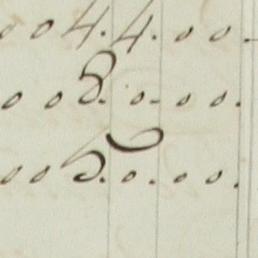 0 0 4. 4. 0 0.
0 0 8. 0. 0 0.
0 0 5. 0. 0 0.